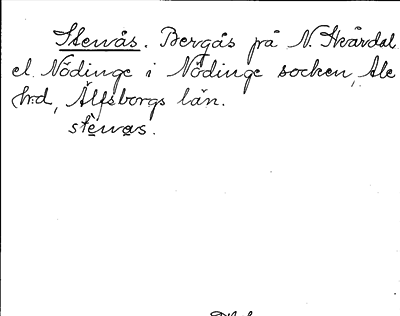 Stenås. Bergås på N. Skårdal
el. Nödinge i Nödinge socken, Ale
hrd, Älfsborgs län.